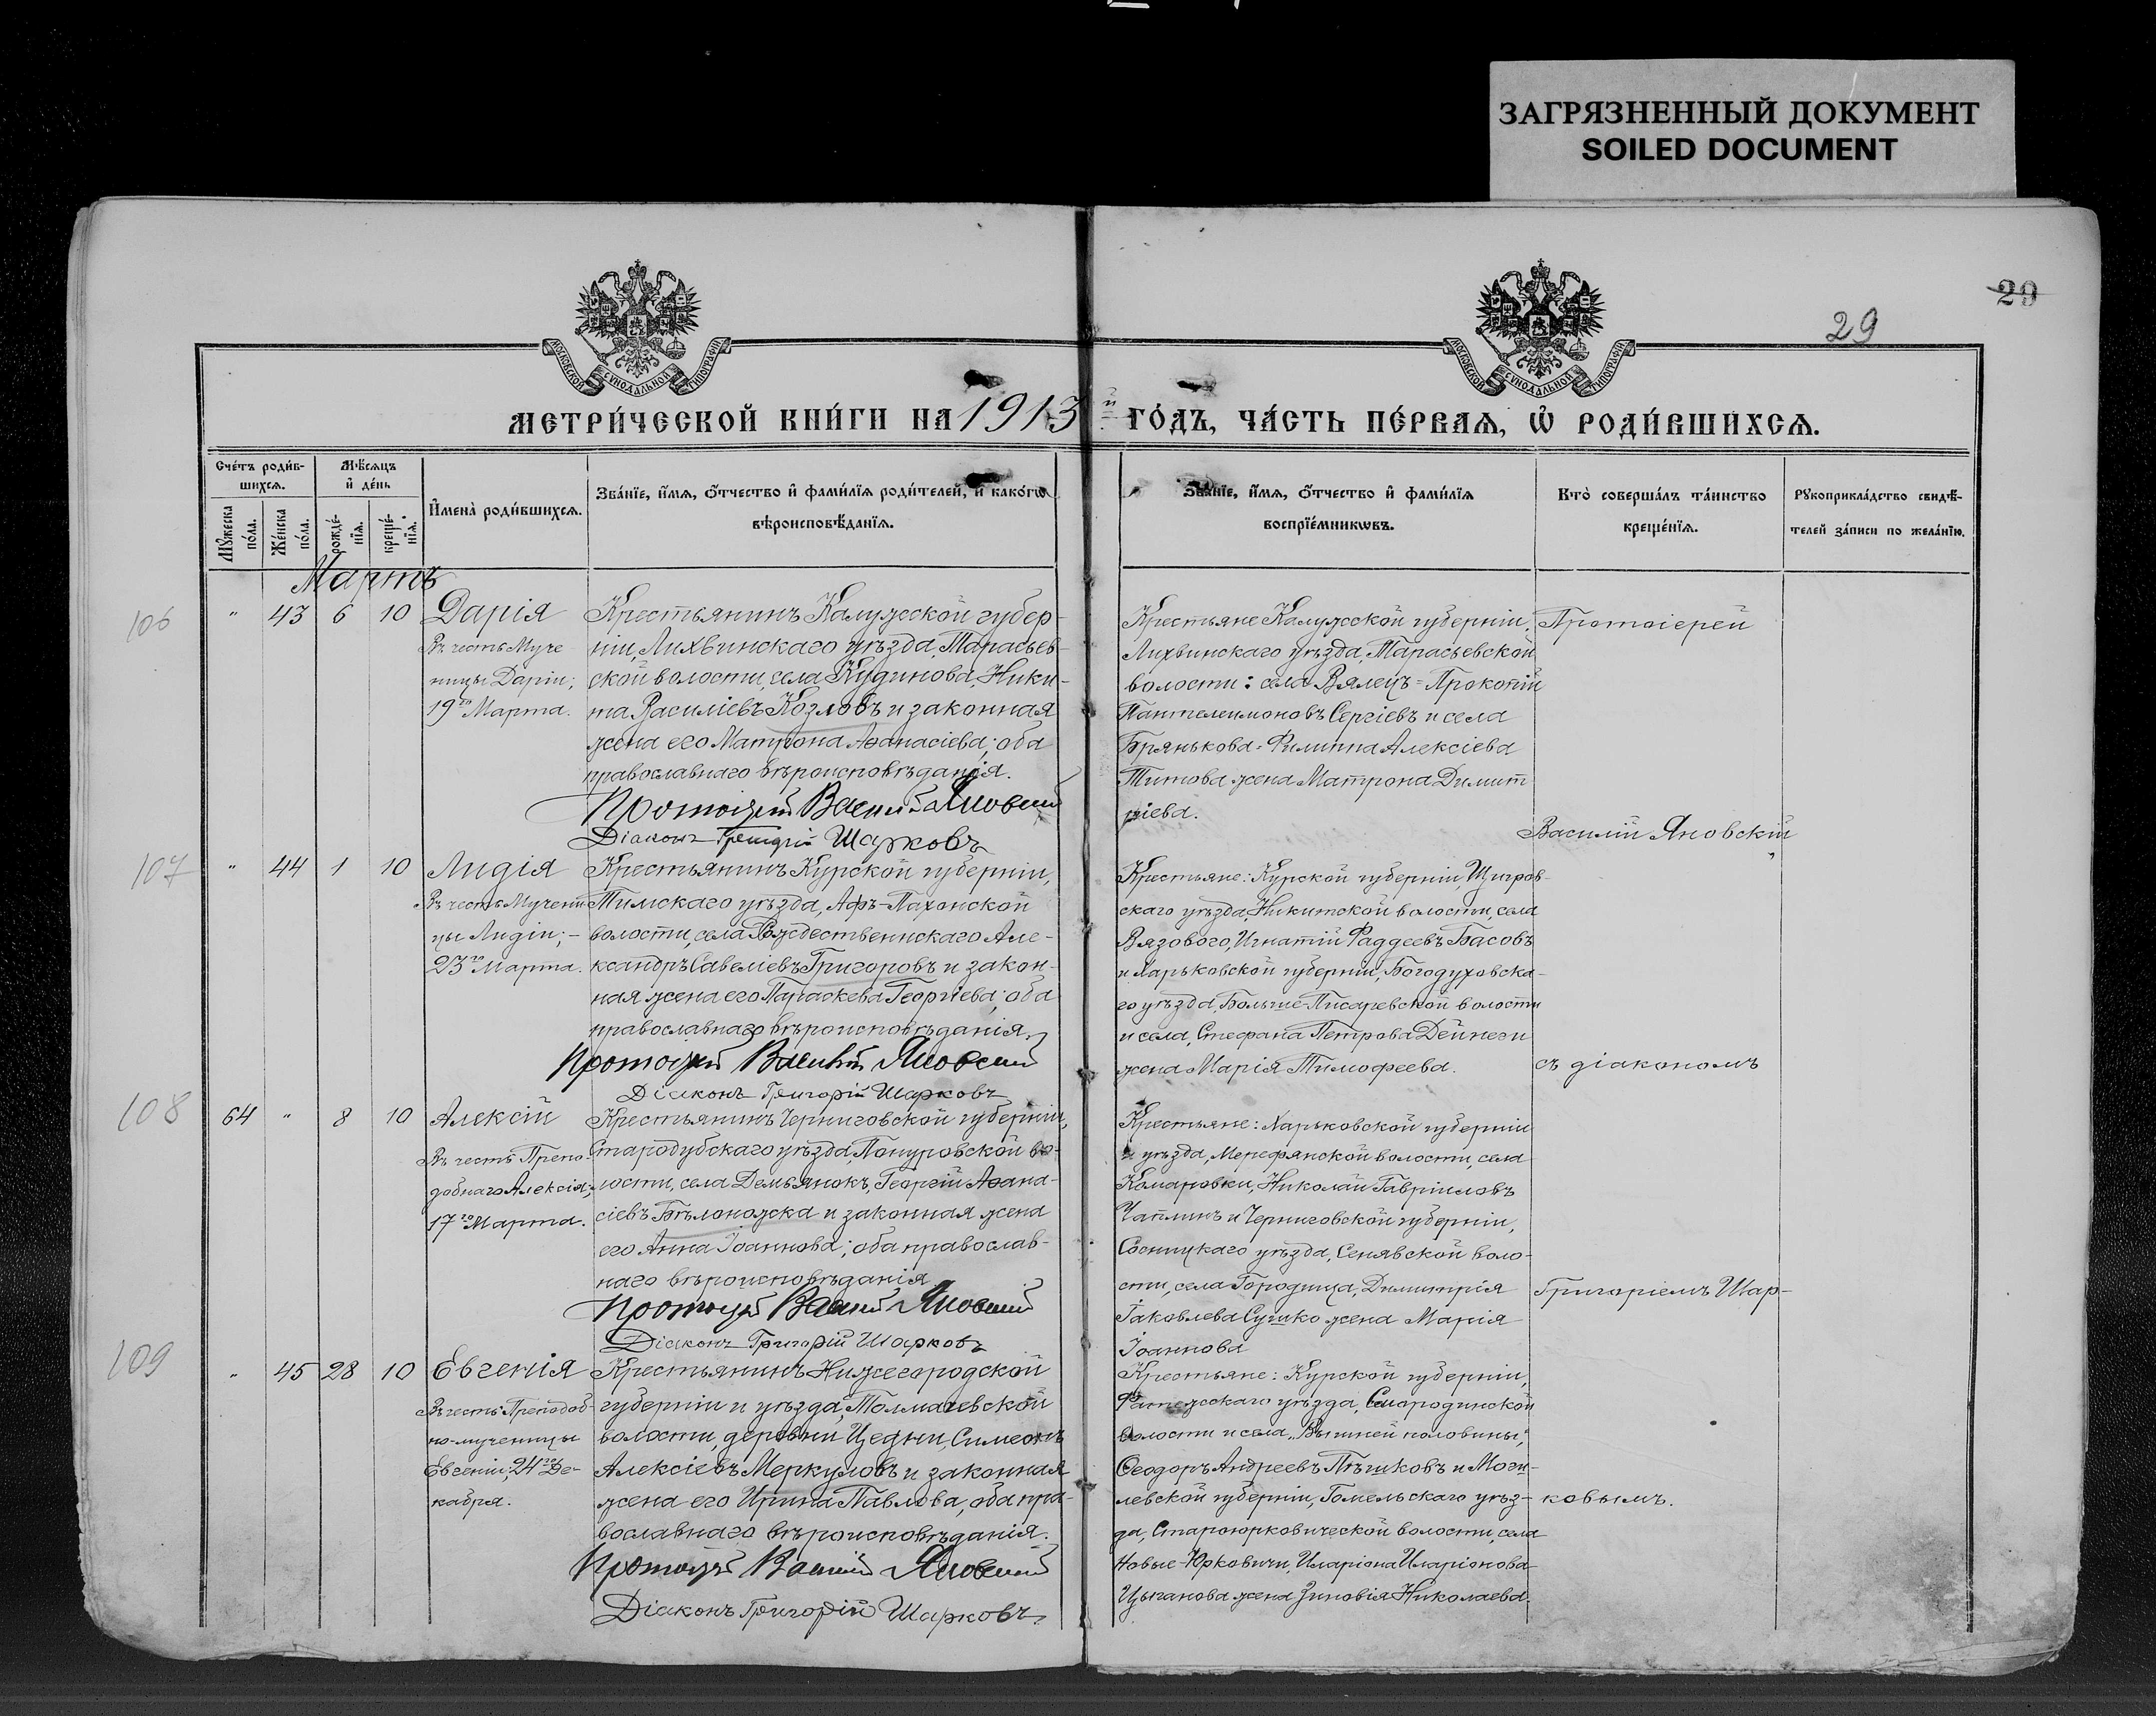 ЗАГРЯЗНЕННЫЙ ДОКУМЕНТ
SOILED DOCUMENT
29
29
МОСКОВСКОЙ СѴНОДАЛЬНОЙ ТИПОГРАФІИ
МОСКОВСКОЙ СѴНОДАЛЬНОЙ ТИПОГРАФІИ
МЕТРИ́ЧЕСКОЙ КНИ́ГИ НА 1913 й ГО́ДЪ, ЧА́СТЬ ПЕ́РВАѦ, Ѡ҆ РОДИ́ВШИХСѦ.
Сче́тъ роди́в-
шихсѧ.
Мѣ́сѧцъ
и҆ де́нь
Мꙋ́жеска по́ла.
Же́нска по́ла.
рожде́-нїѧ.
креще́-нїѧ.
И҆мена̀ роди́вшихсѧ.
Зва́нїе, и҆́мѧ, ѻ҆́тчество и҆ фами́лїѧ роди́телей, и҆ како́гѡ
вѣроисповѣ́данїѧ.
Зва́нїе, и҆́мѧ, ѻ҆́тчество и҆ фами́лїѧ
воспрїе́мникѡвъ.
Кто̀ соверша́лъ та́инство
креще́нїѧ.
Рꙋкоприкла́дство свидѣ́-
телей за́писи по жела́нїю.
Мартъ
106
" 43 6 10 Дарія
Въ честь Муче
ницы Даріи;
19го Марта.
Крестьянинъ Калужской губер-
ніи, Лихвинскаго уѣзда, Тарасьев-
ской волости, села Кудинова, Ники-
та Василіевъ Козловъ и законная
жена его Матрона Аѳанасіева; оба
православнаго вѣроисповѣданія.
Протоіерей Василій Яновскій
Діаконъ Григорій Шарковъ
Крестьяне Калужской губерніи,
Лихвинскаго уѣзда, Тарасьевской
волости: села Вялецъ-Прокопій
Пантелеимоновъ Сергіевъ и села
Брянькова-Филиппа Алексіева
Титова жена Матрона Димит
ріева.
Протоіерей
Василій Яновскій
107
" 44 1 10 Лидія
Въ честь Мучени
цы Лидіи;-
23го Марта.
Крестьянинъ Курской губерніи,
Тимскаго уѣзда, Афъ-Пахонской
волости, села Рождественнскаго Але-
ксандръ Савеліевъ Григоровъ и закон-
ная жена его Параскева Георгіева; оба
православнаго вѣроисповѣданія,
Протоіерей Василій Яновскій
Діаконъ Григорій Шарковъ
Крестьяне: Курской губерніи, Щигров-
скаго уѣзда, Никитской волости, села
Вязового, Игнатій Фаддеевъ Басовъ
и Харьковской губерніи, Богодуховска-
го уѣзда, Больше-Писаревской волости
и села, Стефана Петрова Дейнеги
жена Марія Тимофеева.
съ діакономъ
108
64 " 8 10 Алексій
Въ честь Препо-
добнаго Алексія;
17го Марта.
Крестьянинъ Черниговской губерніи,
Стародубскаго уѣзда, Понуровской во-
лости, села Демьянокъ, Георгій Аѳана-
сіевъ Бѣлоножска и законная жена
его Анна Іоаннова; оба православ-
наго вѣроисповѣданія
Протоіерей Василій Яновскій
Діаконъ Григорій Шарковъ
Крестьяне: Харьковской губерніи
и уѣзда, Мерефянской волости, села
Комаровки, Николай Гавріиловъ
Чаплинъ и Черниговской губерніи,
Сосницкаго уѣзда, Сенявской воло-
сти, села Городища, Димитрія
Іаковлева Сушко жена Марія
Іоаннова
Григоріемъ Шар-
109
" 45 28 10 Евгенія
Въ честь Преподоб-
но-мученицы
Евгеніи; 24го Де-
кабря.
Крестьянинъ Нижегородской
губерніи и уѣзда, Толмачевской
волости, деревни Цедни, Симеонъ
Алексіевъ Меркуловъ и законная
жена его Ирина Павлова, оба пра-
вославнаго вѣроисповѣданія.
Протоіерей Василій Яновскій
Діаконъ Григорій Шарковъ
Крестьяне: Курской губерніи,
Фатежскаго уѣзда, Смородинской
волости и села „Вышней половины",
Ѳеодоръ Андреевъ Пѣшковъ и Моги-
левской губерніи, Гомельскаго уѣз-
да, Староюрковической волости, села
Новые-Юрковичи, Иларіона Иларіонова
Цыганова жена Зиновія Николаева.
ковымъ.